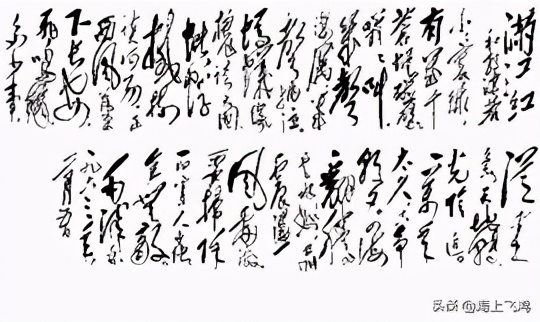 满江红
和郭沫若
小小寰球
有几个
苍蝇碰壁
嗡嗡叫
几声
凄厉几
声抽泣
蚂蚁缘
槐夸大国
蚍蜉
撼树
谈何易正
西风落叶
下长安
飞鸣镝
多少事
从来
急天地转
光阴迫
一万年
太久只争
朝夕四海
翻腾
云水怒五洲
震荡
风雷激
要扫除
一切害人虫
全无敌
毛泽东
一九六三年
二月五日
头条 @马上飞